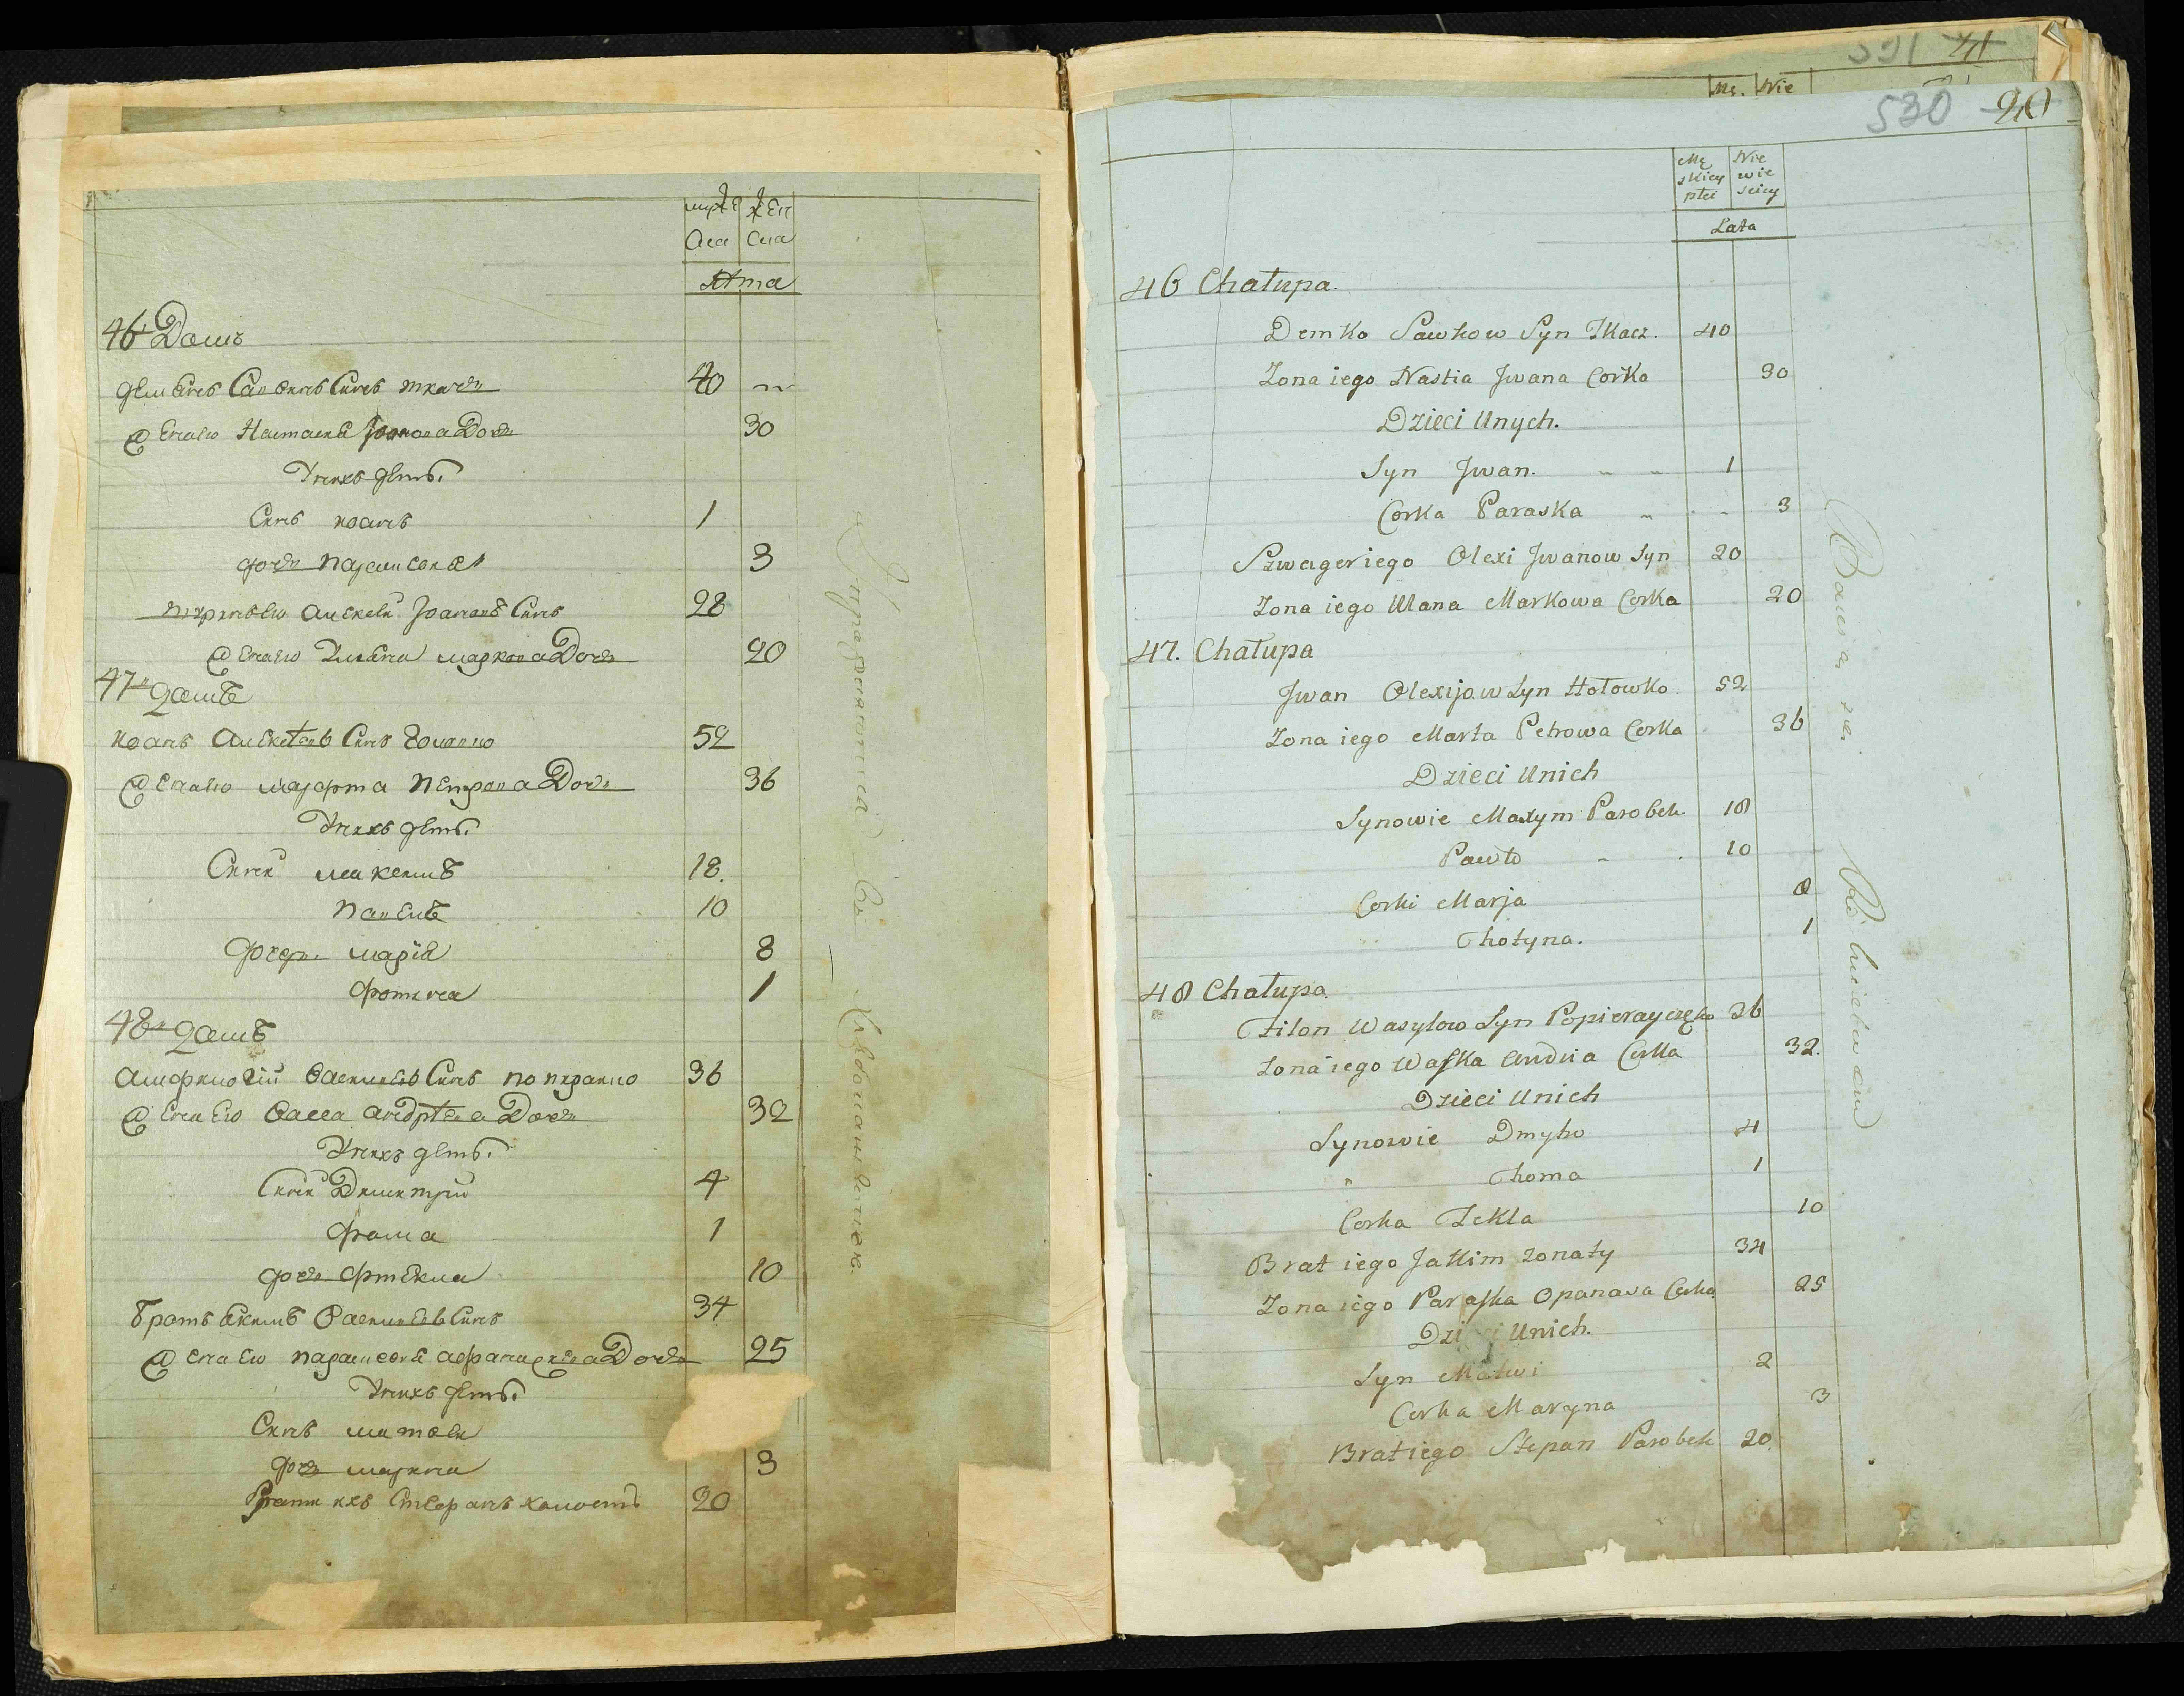 муже жен
ска ска
лѣта
46 Домъ
Демянъ Савовъ Синъ ткачъ 40
Жена Его Настасия Іванова Дочь 30
У нихъ дети.
Синъ иванъ 1
дочь параскевия 3
Алексей Івановъ Синъ 28
Жена Его Улияна маркова Дочь 20
47 домъ
иванъ Алексеевъ Синъ Головко 52
Жена Его марфта Петрова Дочь 36
У нихъ дети.
Сини максимъ 18.
Павелъ 10
дочери мария 8
фотина 1
48 домъ
Василиевъ Синъ 36
Жена Его Васса Андреева Дочь 32
У нихъ дети.
Сини Димитрий 4
Фома 1
дочь фтекла 10
братъ Якимъ Василиевъ Синъ 34
Жена Его параскевия афанасиева Дочь 25
У нихъ дети.
Синъ матвей
дочь марина 3
Братъ ихъ Стефанъ холостъ 20
531 41
Mę. Nie
530 40
Mę Nie
skiey wie
płci sciey
Lata
46 Chałupa.
Demko Sawkow Syn Tkacz. 40
Zona iego Nastia Jwana Corka 30
Dzieci Unych.
Syn Jwan. 1
Corka Paraska 3
Szwageriego Olexi Jwanow Syn 20
Zona iego Ulana Markowa Corka 20
47. Chałupa
Jwan Olexijow Syn Hołowko. 52
Zona iego Marta Petrowa Corka 36
Dzieci Unich
Synowie Maxym Parobek 18
Pawło 10
Corki Marja 8
Chotyna. 1
48 Chałupa.
Filon Wasylow Syn 36
Zona iego Waska Andria Corka 32.
Dzieci Unich
Synowie Dmyko 4
" Choma 1
Corka Tekla 10
Brat iego Jakim zonaty 34
Zona iego Paraska Opanasa Corka 25
Dzieci Unich.
Syn Matwi 2
Corka Maryna 3
Bratiego Stepan Parobek 20.